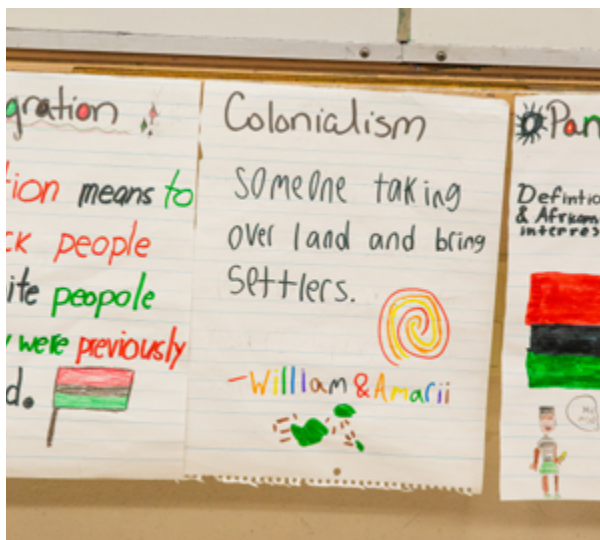 gration
tion means to
ck people
ite peopole
were previously
d.
Colonialism
someone taking
over land and bring
settlers.
-Willliam & Amarii
Pan
Defintio
& African
interres